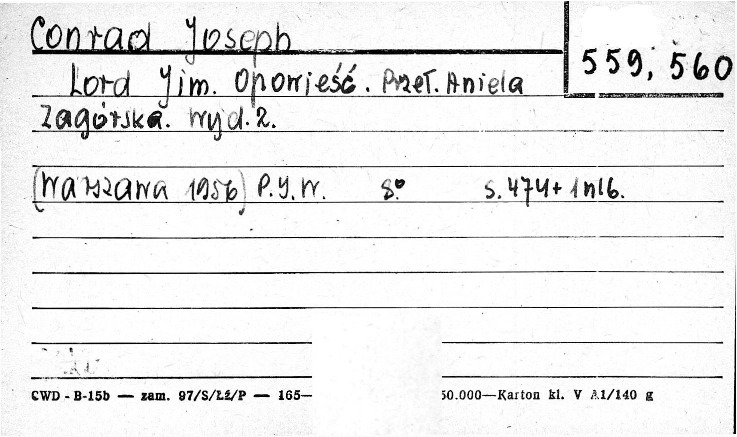 Conrad Joseph
559, 560
Lord Jim. Opowieść. Przeł. Aniela
Zagórska. Wyd. 2.
(Warszawa 1956) P.I.W. 8° s. 474+1nlb.
CWD - B-15b — zam. 97/S/Łź/P — 165— 50.000—Karton kl. V A1/140 g